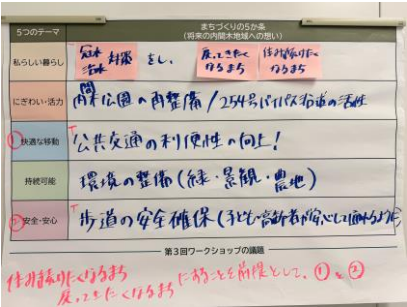 5つのテーマ
まちづくりの5か条
(将来の内間木地域への想い)
私らしい暮らし
冠水
治水 対策 をし、
戻ってきたく
なるまち
住み続けたく
なるまち
にぎわい・活力
内間木公園の再整備/254号バイパス沿道の活性
① 快適な移動
公共交通の利便性の向上!
持続可能
環境の整備(緑・景観・農地)
② 安全・安心
歩道の安全確保(子ども・高齢者が安心して
第3回ワークショップの議題
住み続けたくなるまち
戻ってきたくなるまち
になることを前提として、①と②